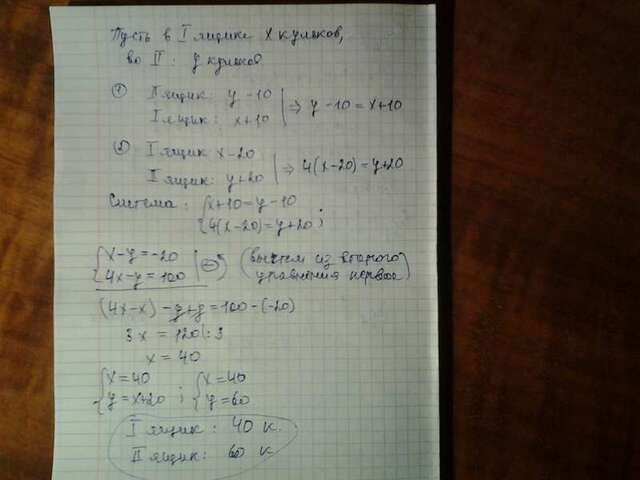 Пусть в I ящике x кульков,
во II: y кульков
① II ящик: y-10
I ящик: x+10 | ⇒ y-10=x+10
② I ящик x-20
II ящик: y+20 | ⇒ 4(x-20)=y+20
Система: { x+10=y-10
4(x-20)=y+20 ;
{ x-y=-20
4x-y=100 | ⊖ (вычтем из второго
уравнения первое)
(4x-x)-y+y=100-(-20)
3x=120 |:3
x=40
{ x=40 ; { x=40
y=x+20 y=60
I ящик: 40 к.
II ящик: 60 к